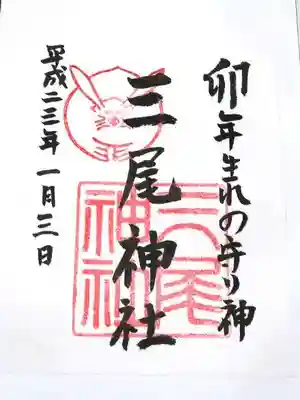 卯年生れの守り神
三尾神社
三尾神社
平成二三年一月三日